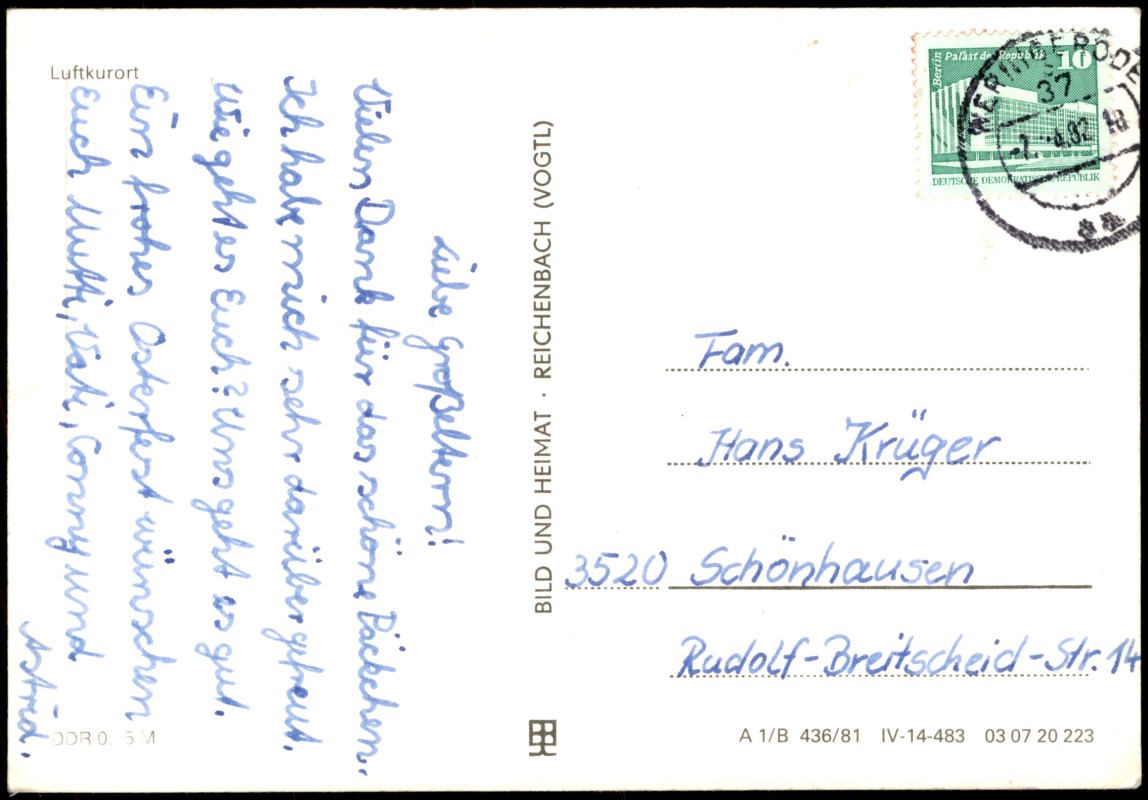 Luftkurort
Liebe Großeltern!
Vielen Dank für das schöne Päckchen.
Ich habe mich sehr darüber gefreut.
Wie geht es Euch? Uns geht es gut.
Ein frohes Osterfest wünschen
Euch Mutti, Vati, Conny und
Astrid.
DDR 0. 5 M
BILD UND HEIMAT · REICHENBACH (VOGTL)
Berlin
Palast der Republik 10
DEUTSCHE DEMOKRATISCHE REPUBLIK
WERNIGERODE
37
.4.82 18
aa
Fam.
Hans Krüger
3520 Schönhausen
Rudolf-Breitscheid-Str. 14
A 1/B 436/81 IV-14-483 03 07 20 223